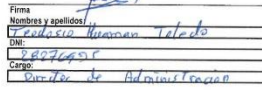 Firma
Nombres y apellidos:
Teodosio Huaman Toledo
DNI:
Cargo:
Director de Administracion